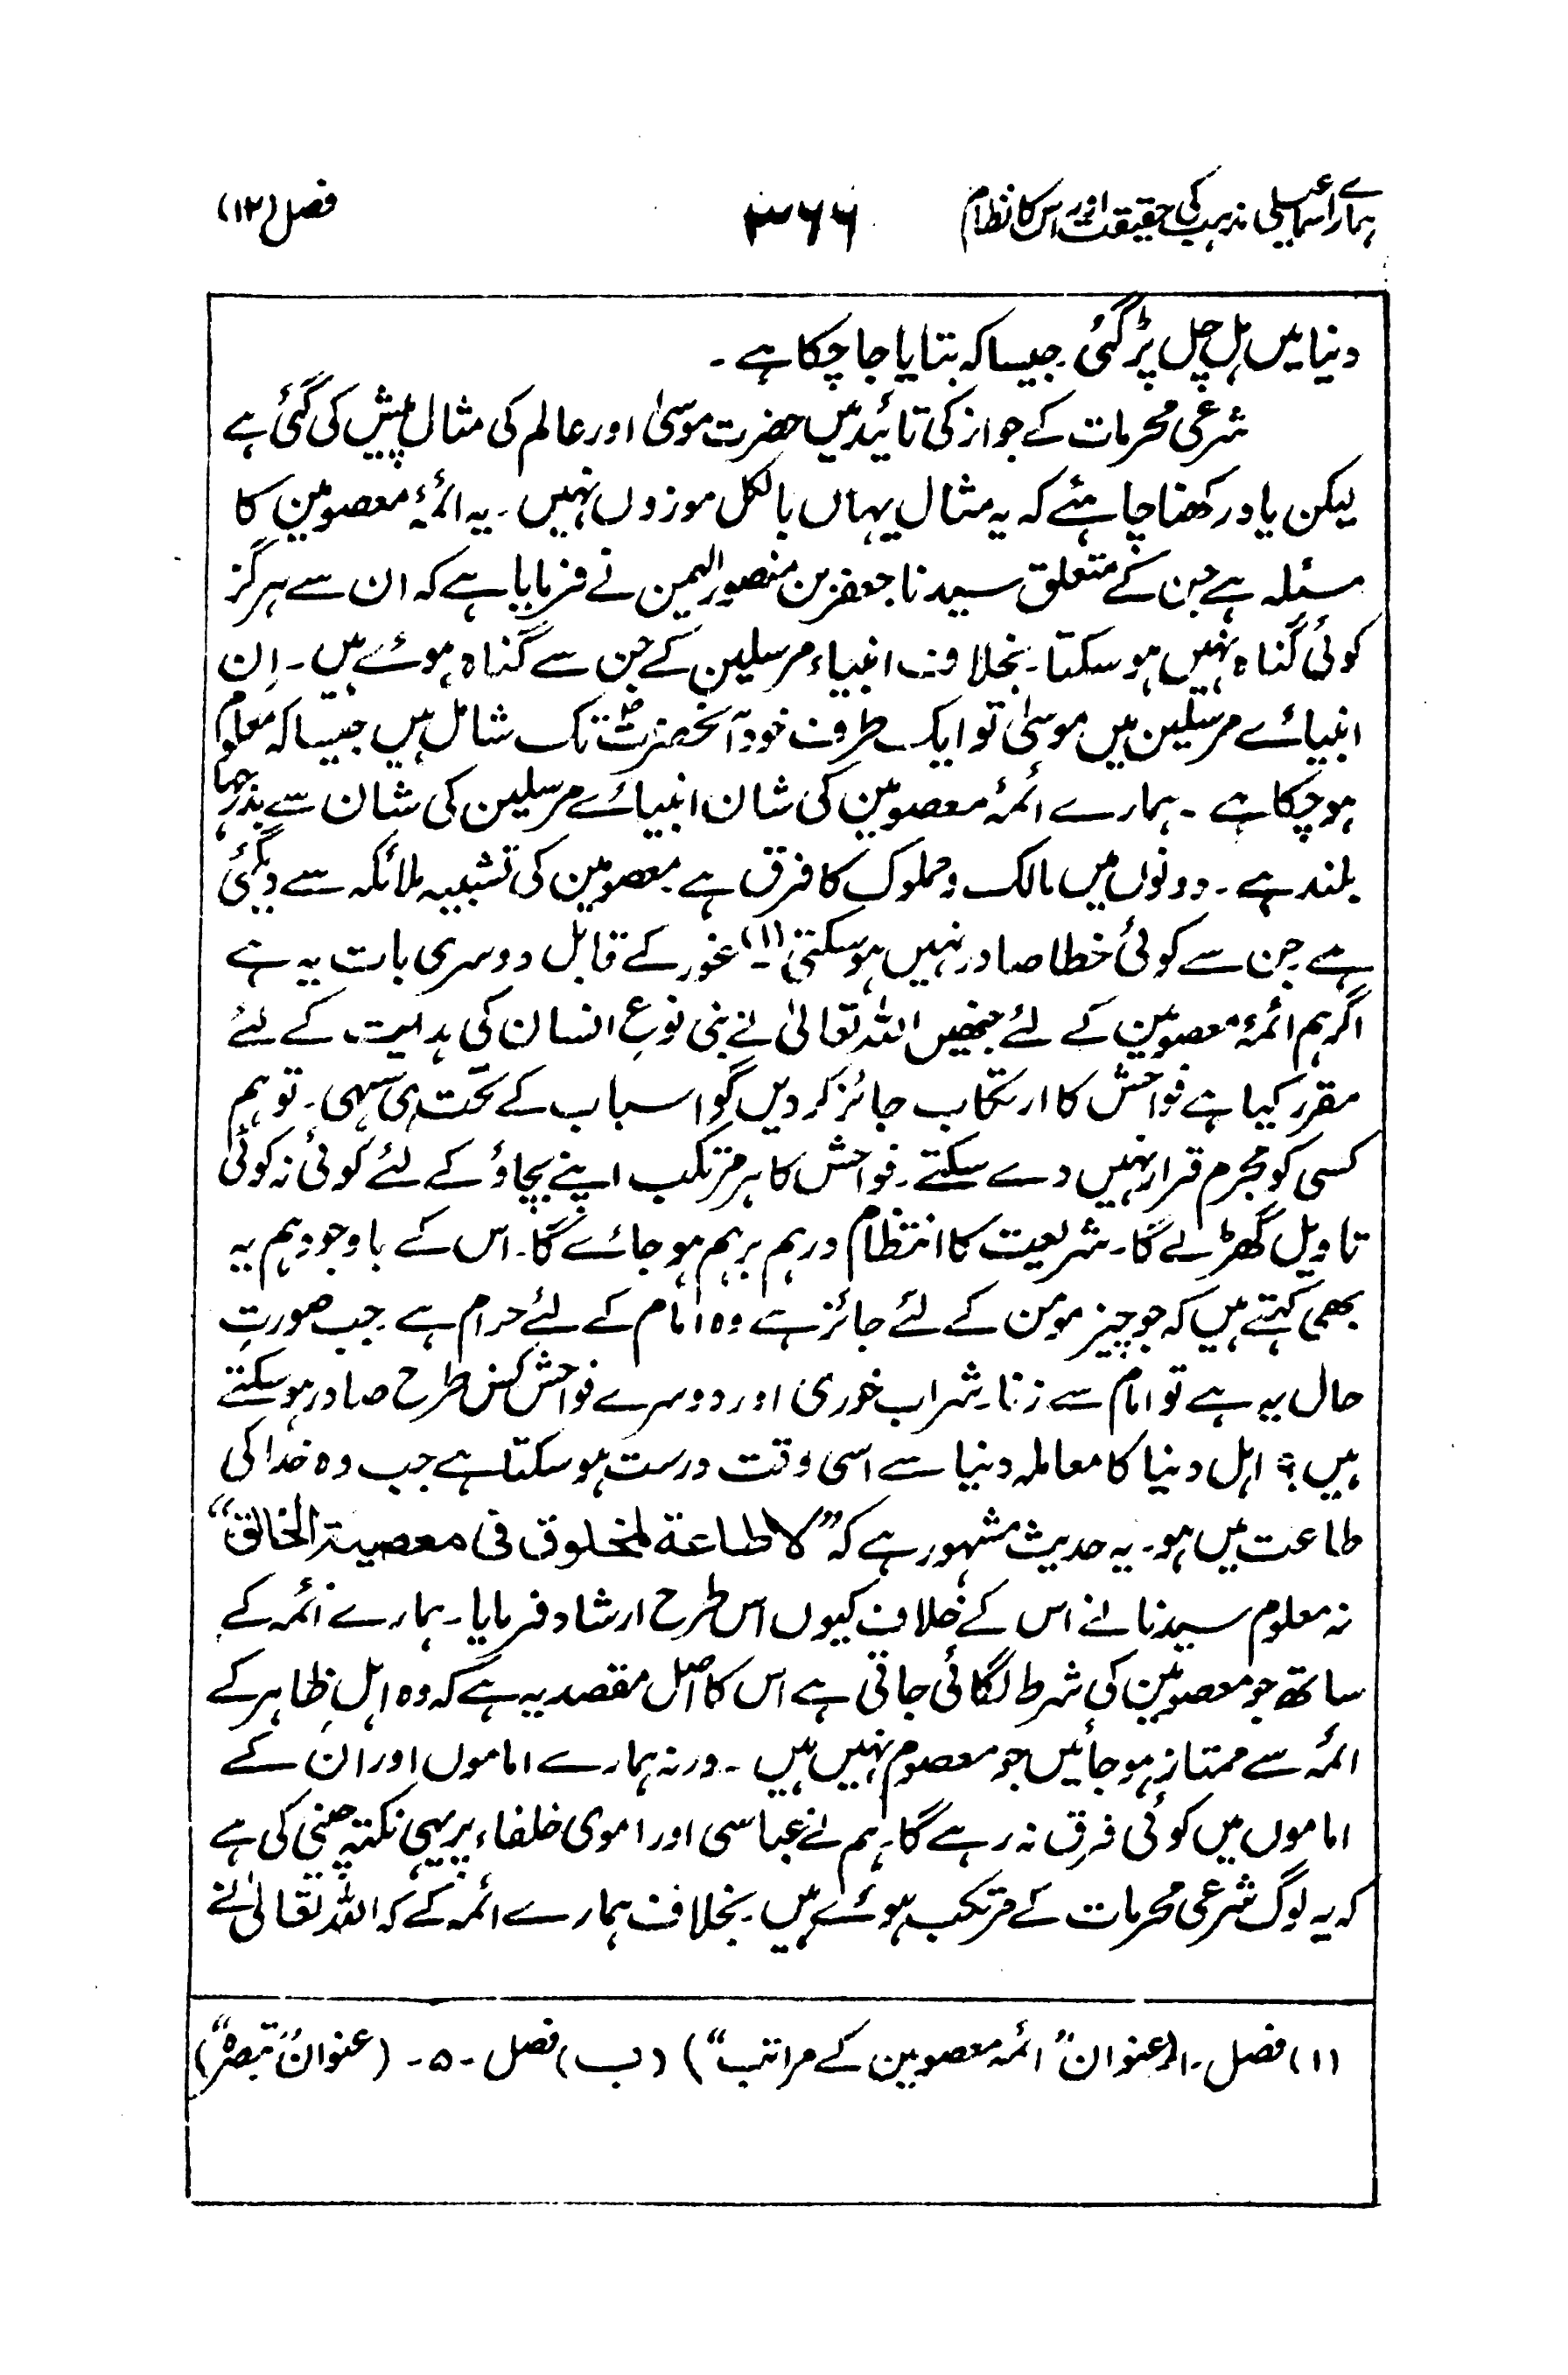 ہمارے اسماعیلی مذہب کی حقیقت اور اس کا نظام ۳۶۶ فصل (۱۲)
دنیا میں ہل چل پڑ گئی جیسا کہ بتایا جا چکا ہے ۔
شرعی محرمات کے جواز کی تائید میں حضرت موسیٰ اور عالم کی مثال پیش کی گئی ہے
لیکن یاد رکھنا چاہئے کہ یہ مثال یہاں بالکل موزوں نہیں ۔ یہ ائمۂ معصومین کا
مسئلہ ہے جن کے متعلق سیدنا جعفر بن منصور الیمن نے فرمایا ہے کہ ان سے ہرگز
کوئی گناہ نہیں ہو سکتا ۔ بخلاف انبیاء مرسلین کے جن سے گناہ ہوئے ہیں ۔ اِن
انبیائے مرسلین میں موسیٰ تو ایک طرف خود آنحضرتؐ تک شامل ہیں جیسا کہ معلوم
ہو چکا ہے ۔ ہمارے ائمۂ معصومین کی شان انبیائے مرسلین کی شان سے بدرجہا
بلند ہے ۔ دونوں میں مالک و مملوک کا فرق ہے ۔ معصومین کی تشبیہ ملائکہ سے دیگئی
ہے جن سے کوئی خطا صادر نہیں ہو سکتی (۱)۔ غور کے قابل دوسری بات یہ ہے
اگر ہم ائمۂ معصومین کے لئے جنھیں اللہ تعالیٰ نے بنی نوعِ انسان کی ہدایت کے لئے
مقرر کیا ہے فواحش کا ارتکاب جائز کر دیں گو اسباب کے تحت ہی سہی ۔ تو ہم
کسی کو مجرم قرار نہیں دے سکتے ۔ فواحش کا ہر مرتکب اپنے بچاؤ کے لئے کوئی نہ کوئی
تاویل گھڑ لے گا ۔ شریعت کا انتظام درہم برہم ہو جائے گا ۔ اس کے باوجود ہم یہ
بھی کہتے ہیں کہ جو چیز مومن کے لئے جائز ہے وہ امام کے لئے حرام ہے ۔ جب صورتِ
حال یہ ہے تو امام سے زنا ۔ شراب خوری اور دوسرے فواحش کس طرح صادر ہو سکتے
ہیں ؟ اہل دنیا کا معاملہ دنیا سے اسی وقت درست ہو سکتا ہے جب وہ خدا کی
طاعت میں ہو ۔ یہ حدیث مشہور ہے کہ ”لا طاعة لمخلوق فی معصیة الخالق“
نہ معلوم سیدنا نے اس کے خلاف کیوں اس طرح ارشاد فرمایا ۔ ہمارے ائمہ کے
ساتھ جو معصومین کی شرط لگائی جاتی ہے اس کا اصل مقصد یہ ہے کہ وہ اہلِ ظاہر کے
ائمہ سے ممتاز ہو جائیں جو معصوم نہیں ہیں ۔ ورنہ ہمارے اماموں اور ان کے
اماموں میں کوئی فرق نہ رہے گا ۔ ہم نے عباسی اور اموی خلفاء پر یہی نکتہ چینی کی ہے
کہ یہ لوگ شرعی محرمات کے مرتکب ہوئے ہیں ۔ بخلاف ہمارے ائمہ کے کہ اللہ تعالیٰ نے
(۱) فصل ۔ ۱ (عنوان ”ائمہ معصومین کے مراتب“) (ب) فصل ۔ ۵ ۔ (عنوان ”تبصرہ“)